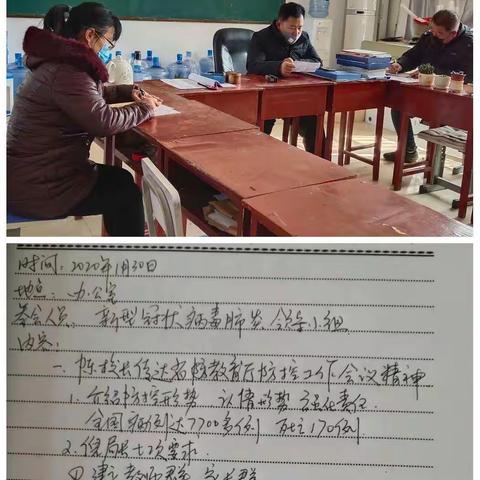 时间：2020年1月30日
地点：办公室
参会人员：新型冠状病毒肺炎领导小组
内容：
一、陈校长传达省教育厅防控工作会议精神
1. 介绍防控形势，认清形势，强化责任
全国病例达7700多例 死亡170例
2. 局长七项要求
建 教师群 家长群